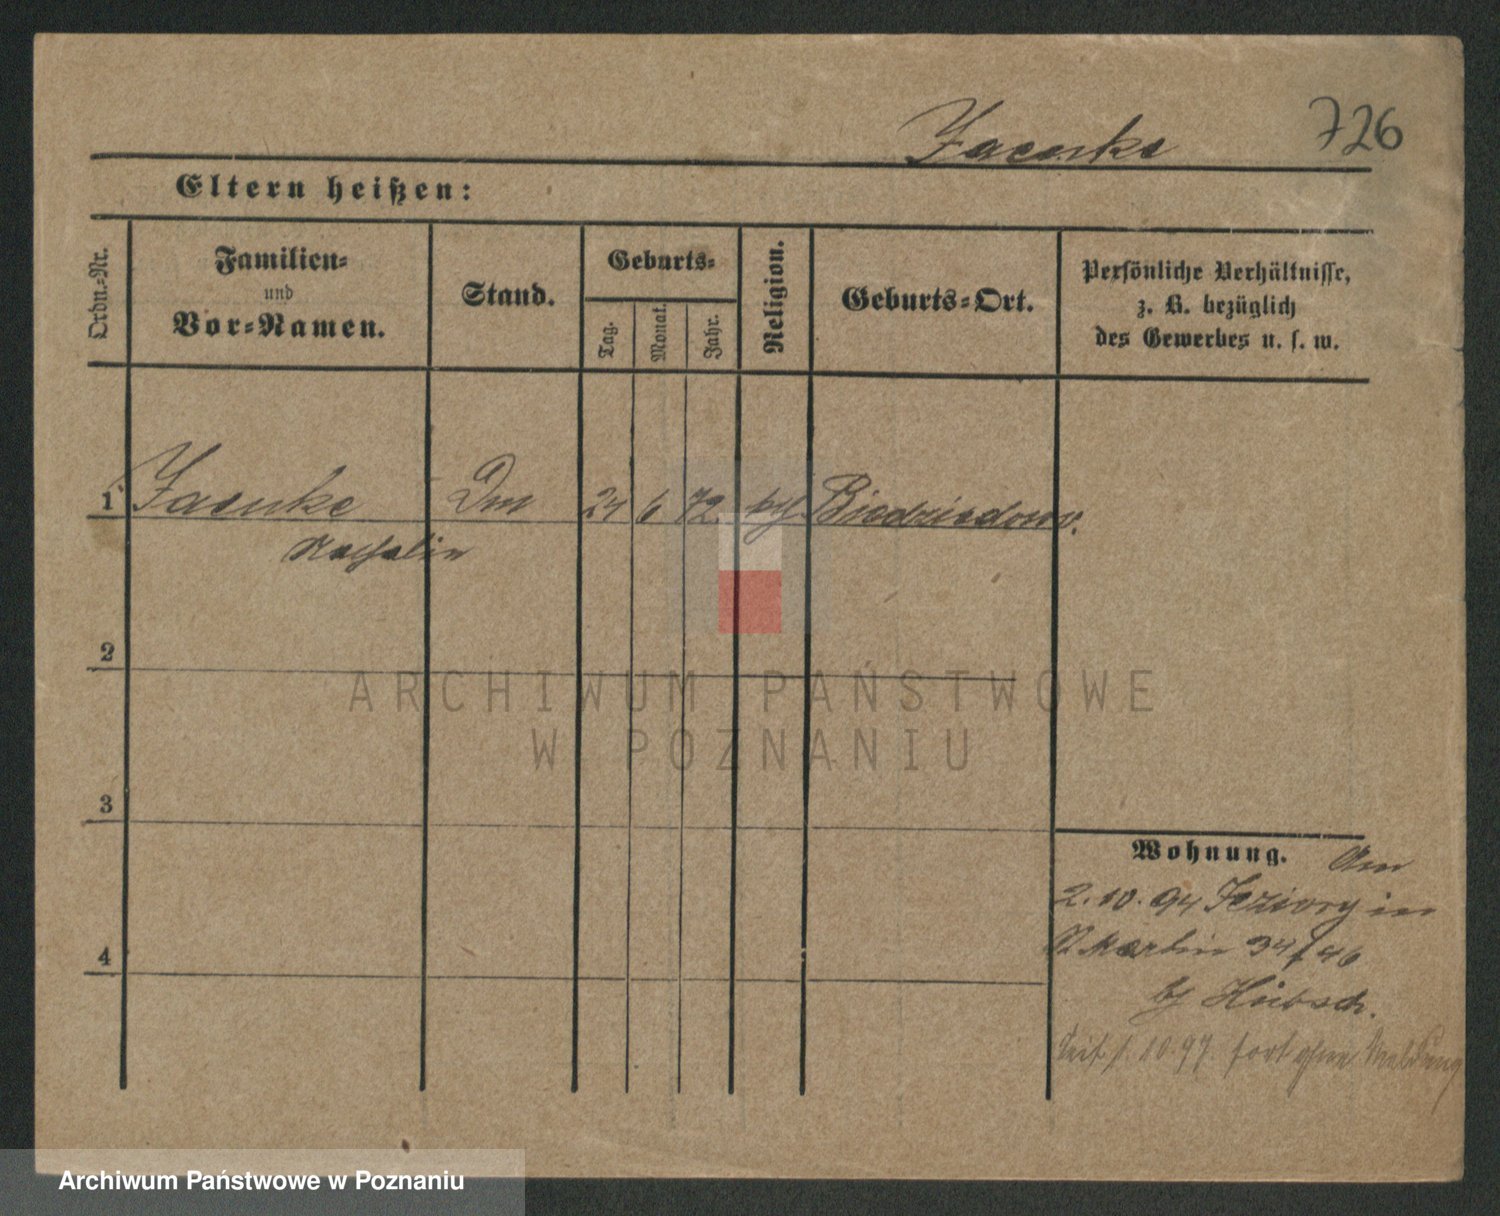 726
Jaenke
Eltern heißen:
Ordn.-Nr.
Familien-
und
Vor-Namen.
Stand.
Geburts-
Tag.
Monat.
Jahr.
Religion.
Geburts-Ort.
Persönliche Verhältnisse,
z. B. bezüglich
des Gewerbes u. s. w.
1 Jaenke 24 6 72 Biedziedow.
2
3
4
ARCHIWUM PAŃSTWOWE
W POZNANIU
Wohnung. Am
2.10.94 Jeziory in
St Martin 34/46
by Hübsch.
Seit 1.10.97. fort ohne Meldung
Archiwum Państwowe w Poznaniu